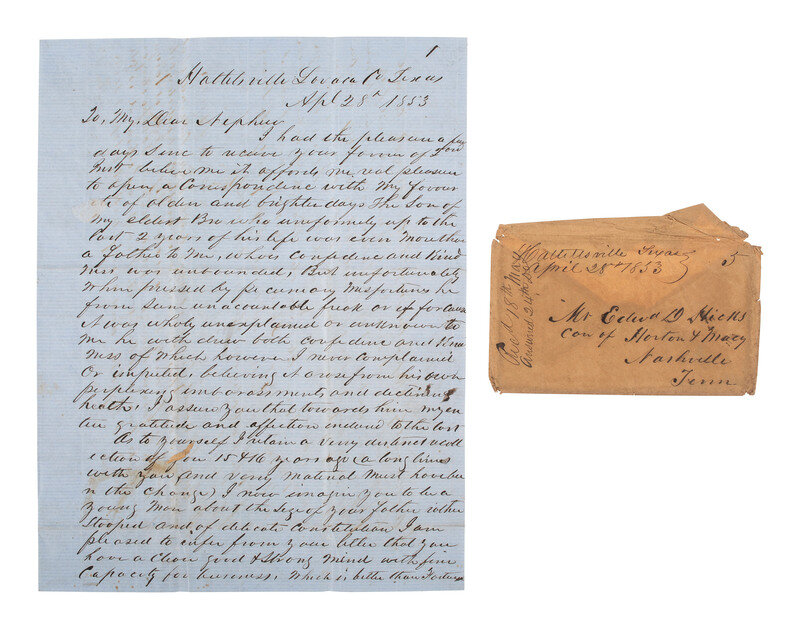 1
Hallettsville Lavaca Co Texas
Apl 28th 1853
To, My, Dear Nephew
I had the pleasure a few
days Since to receive your favour of 2d
Inst believe me it affords me real pleasure
to open, a Correspondence with My favour
ite of olden and brighter days The Son of
my eldest Bro who uniformely up to the
last 2 years of his life was even More than
a father to Me, whos confidence and Kind
ness, was unbounded, But unfortunately
When pressed by pecuniary Misfortunes he
from Some unaccountable freak or if for cause
it was wholy unexplained or unknown to
Me he with drew both confidence and Kind
Ness of Which however I never complained
Or imputed, believing it arose from his own
perplexing embarassments and declining
health, I assure you that towards him my en
tire gratitude and affection endured to the last
As to yourself I retain a very distinct recoll
ection of you 15 & 16 years ago (a long time
with you (and very Material Must have bee
n the Change) I now imagin you to be a
young Man about the Size of your father rather
Stooped and of delicate Constitution I am
pleased to infer from your letter that you
have a Clear good & Strong Mind with fine
Capacity for business, Which is better than Fortune
Hallettsville Texas
April 28th 1853
5
Recd 18th May
Answered 24th
Mr Edwd D Hicks
Car of Horton & Macy
Nashville
Tenn